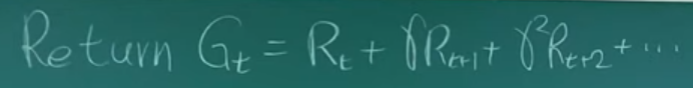 Return Gₜ = Rₜ + γRₜ₊₁ + γ²Rₜ₊₂ + ⋯